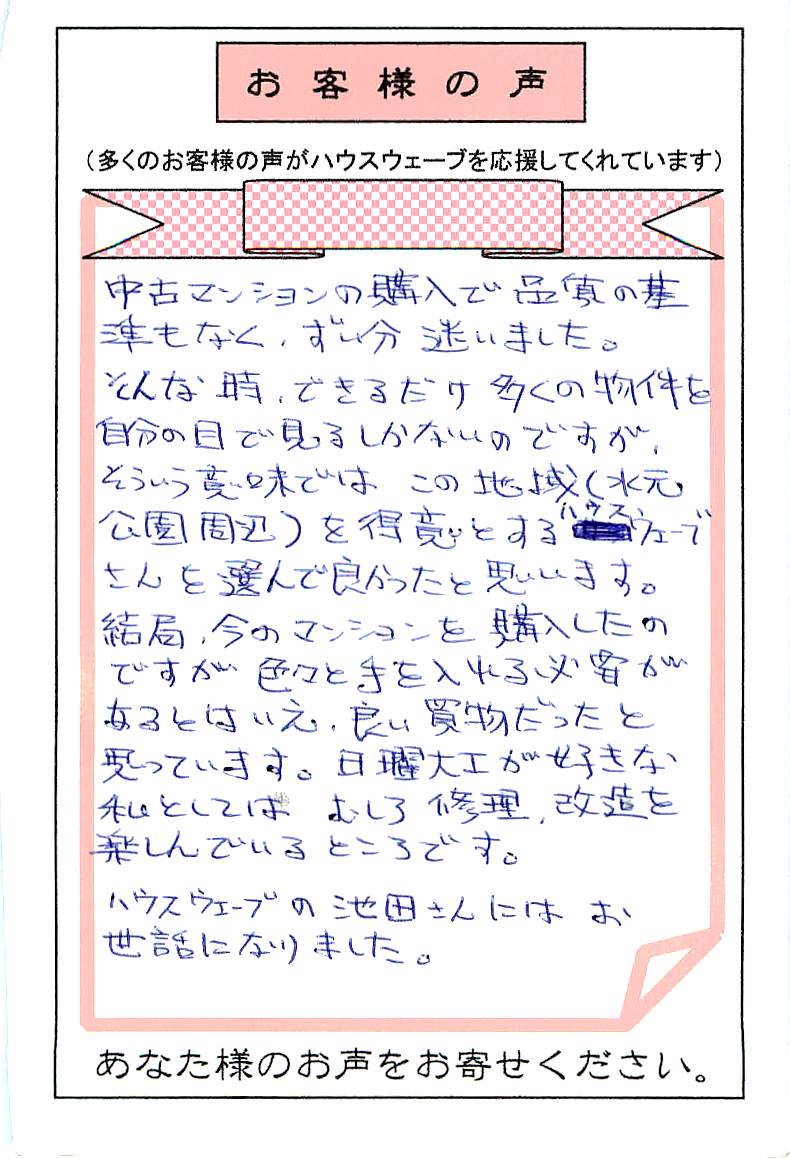 お客様の声
（多くのお客様の声がハウスウェーブを応援してくれています）
中古マンションの購入で品質の基
準もなく、ずい分迷いました。
そんな時、できるだけ多くの物件を
自分の目で見るしかないのですが、
そういう意味ではこの地域（水元
公園周辺）を得意とするハウスウェーブ
さんを選んで良かったと思います。
結局、今のマンションを購入したの
ですが色々と手を入れる必要が
あるとはいえ、良い買物だったと
思っています。日曜大工が好きな
私としてはむしろ修理、改造を
楽しんでいるところです。
ハウスウェーブの池田さんにはお
世話になりました。
あなた様のお声をお寄せください。